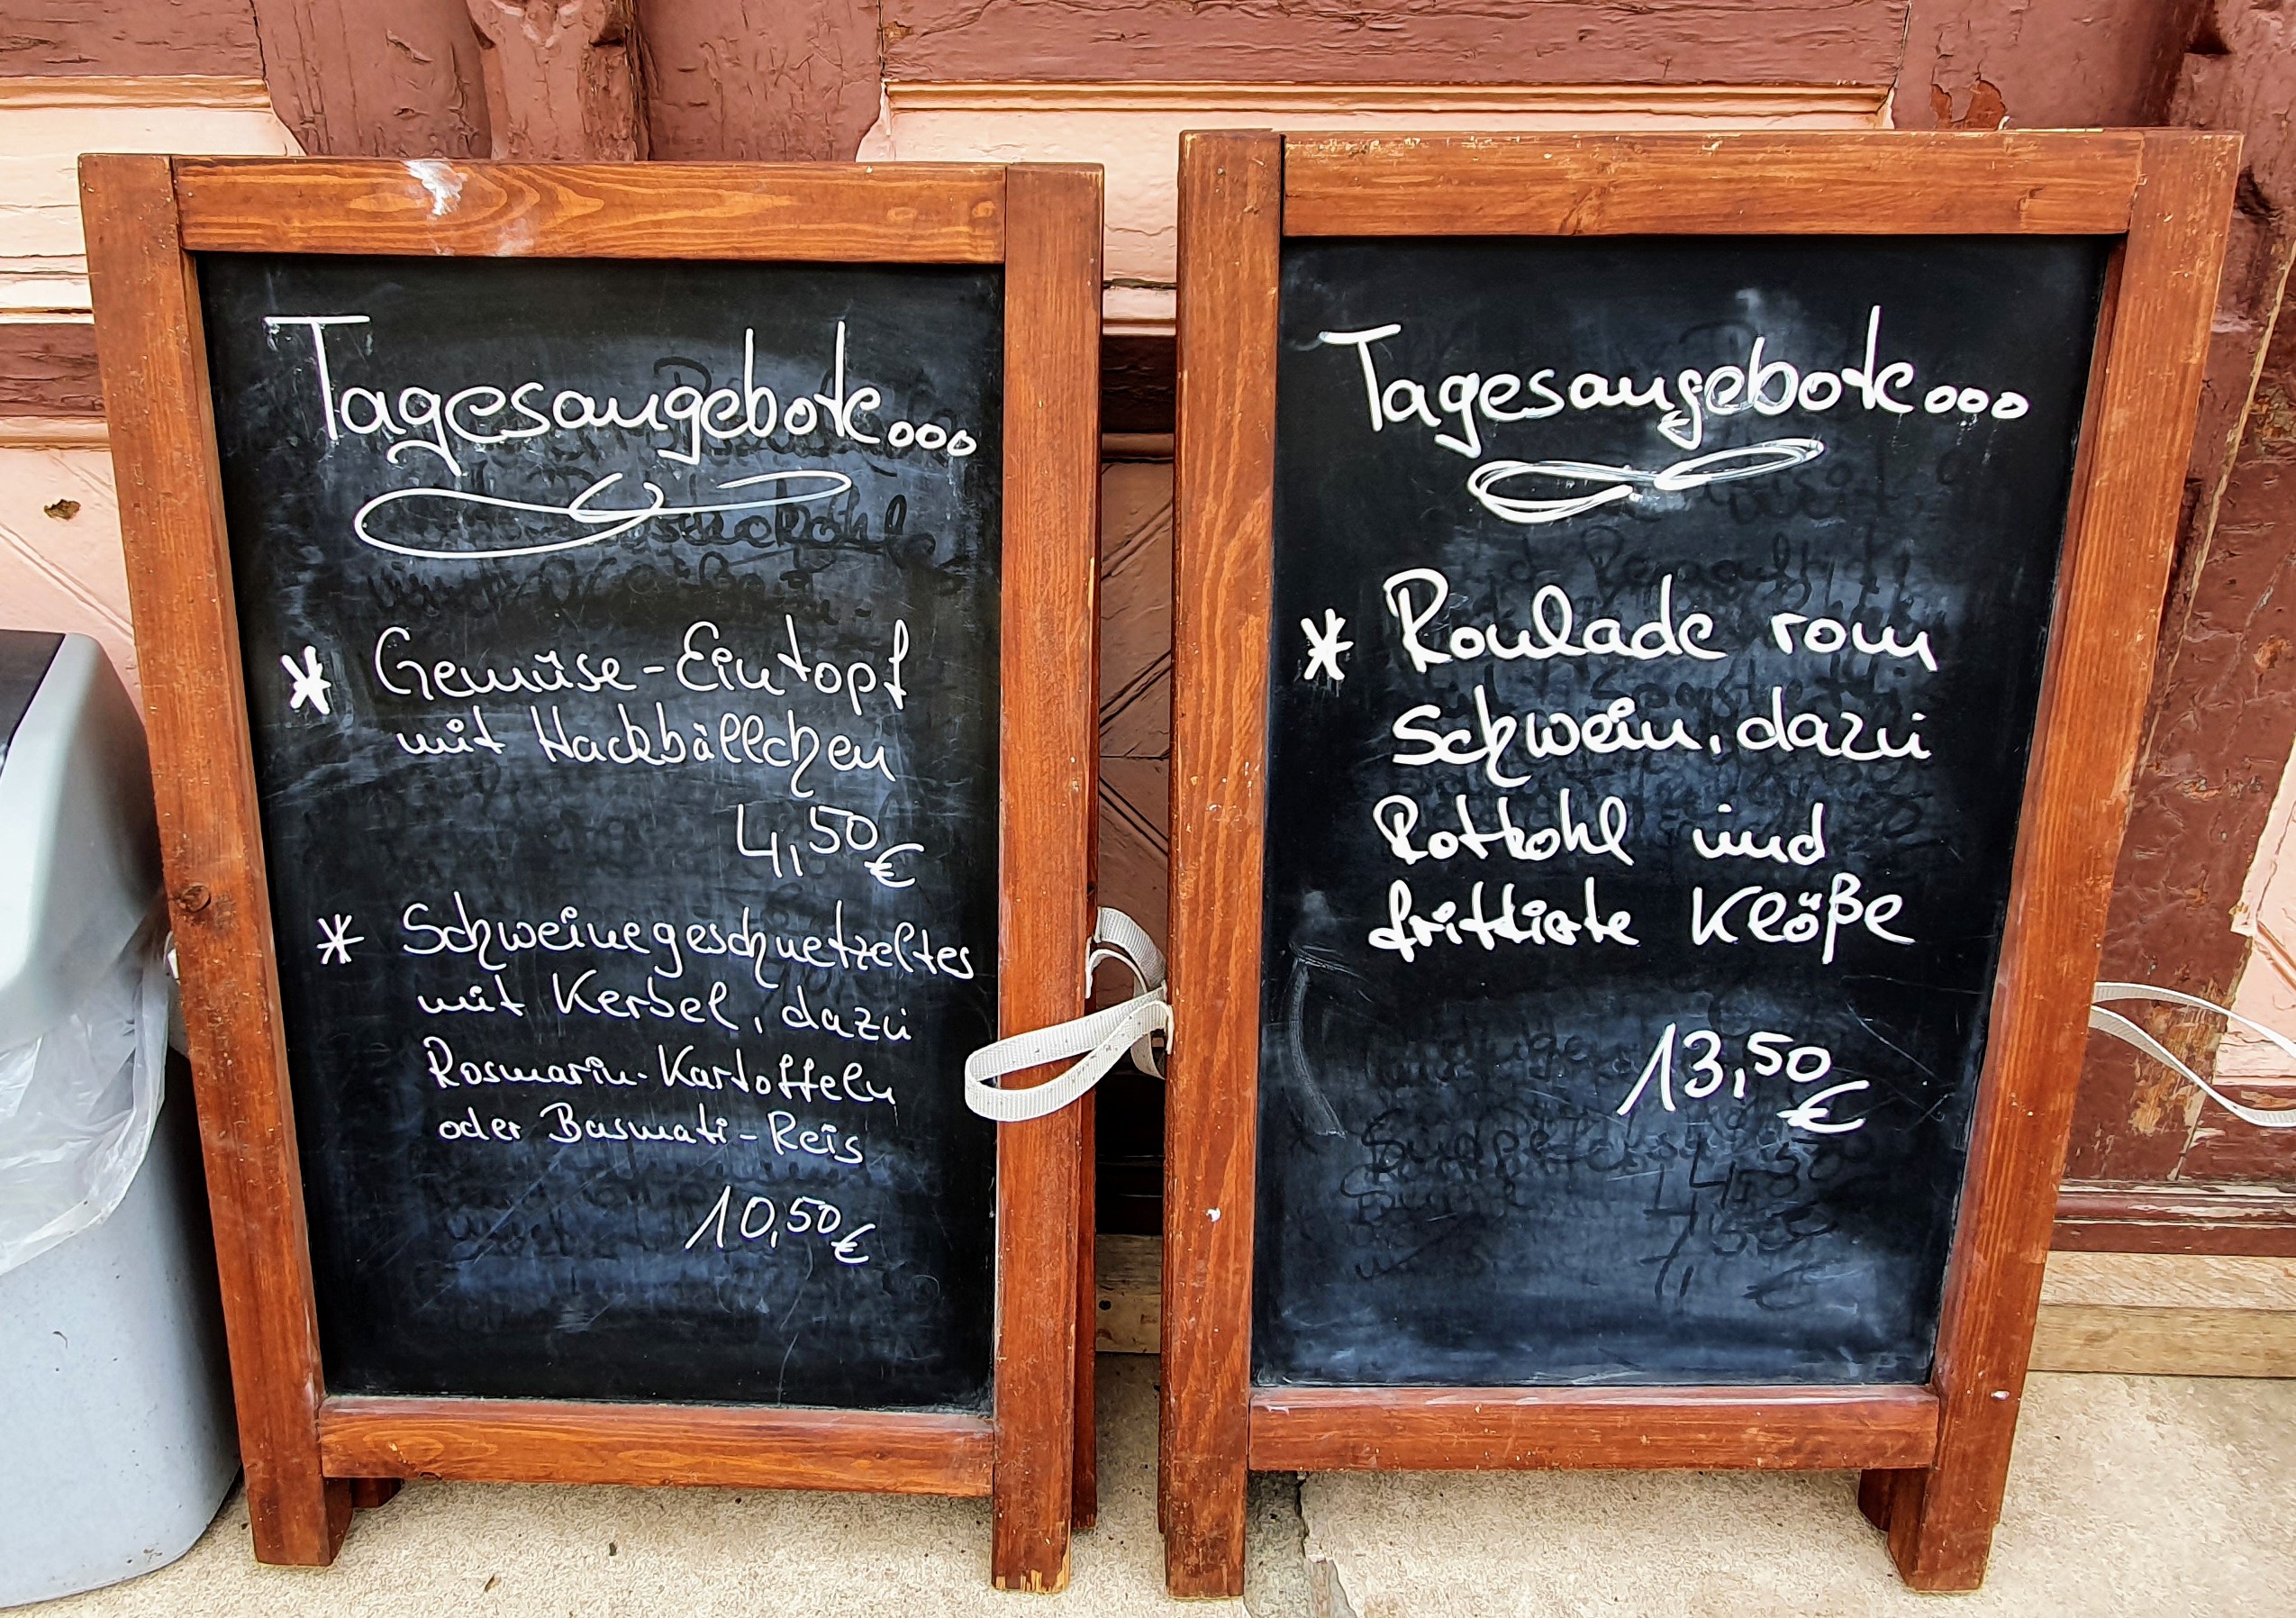 Tagesangebote...
* Gemüse-Eintopf
mit Hackbällchen
4,50 €
* Schweinegeschnetzeltes
mit Kerbel, dazu
Rosmarin-Kartoffeln
oder Basmati-Reis
10,50 €
Tagesangebote...
* Roulade vom
Schwein, dazu
Rotkohl und
frittierte Klöße
13,50 €